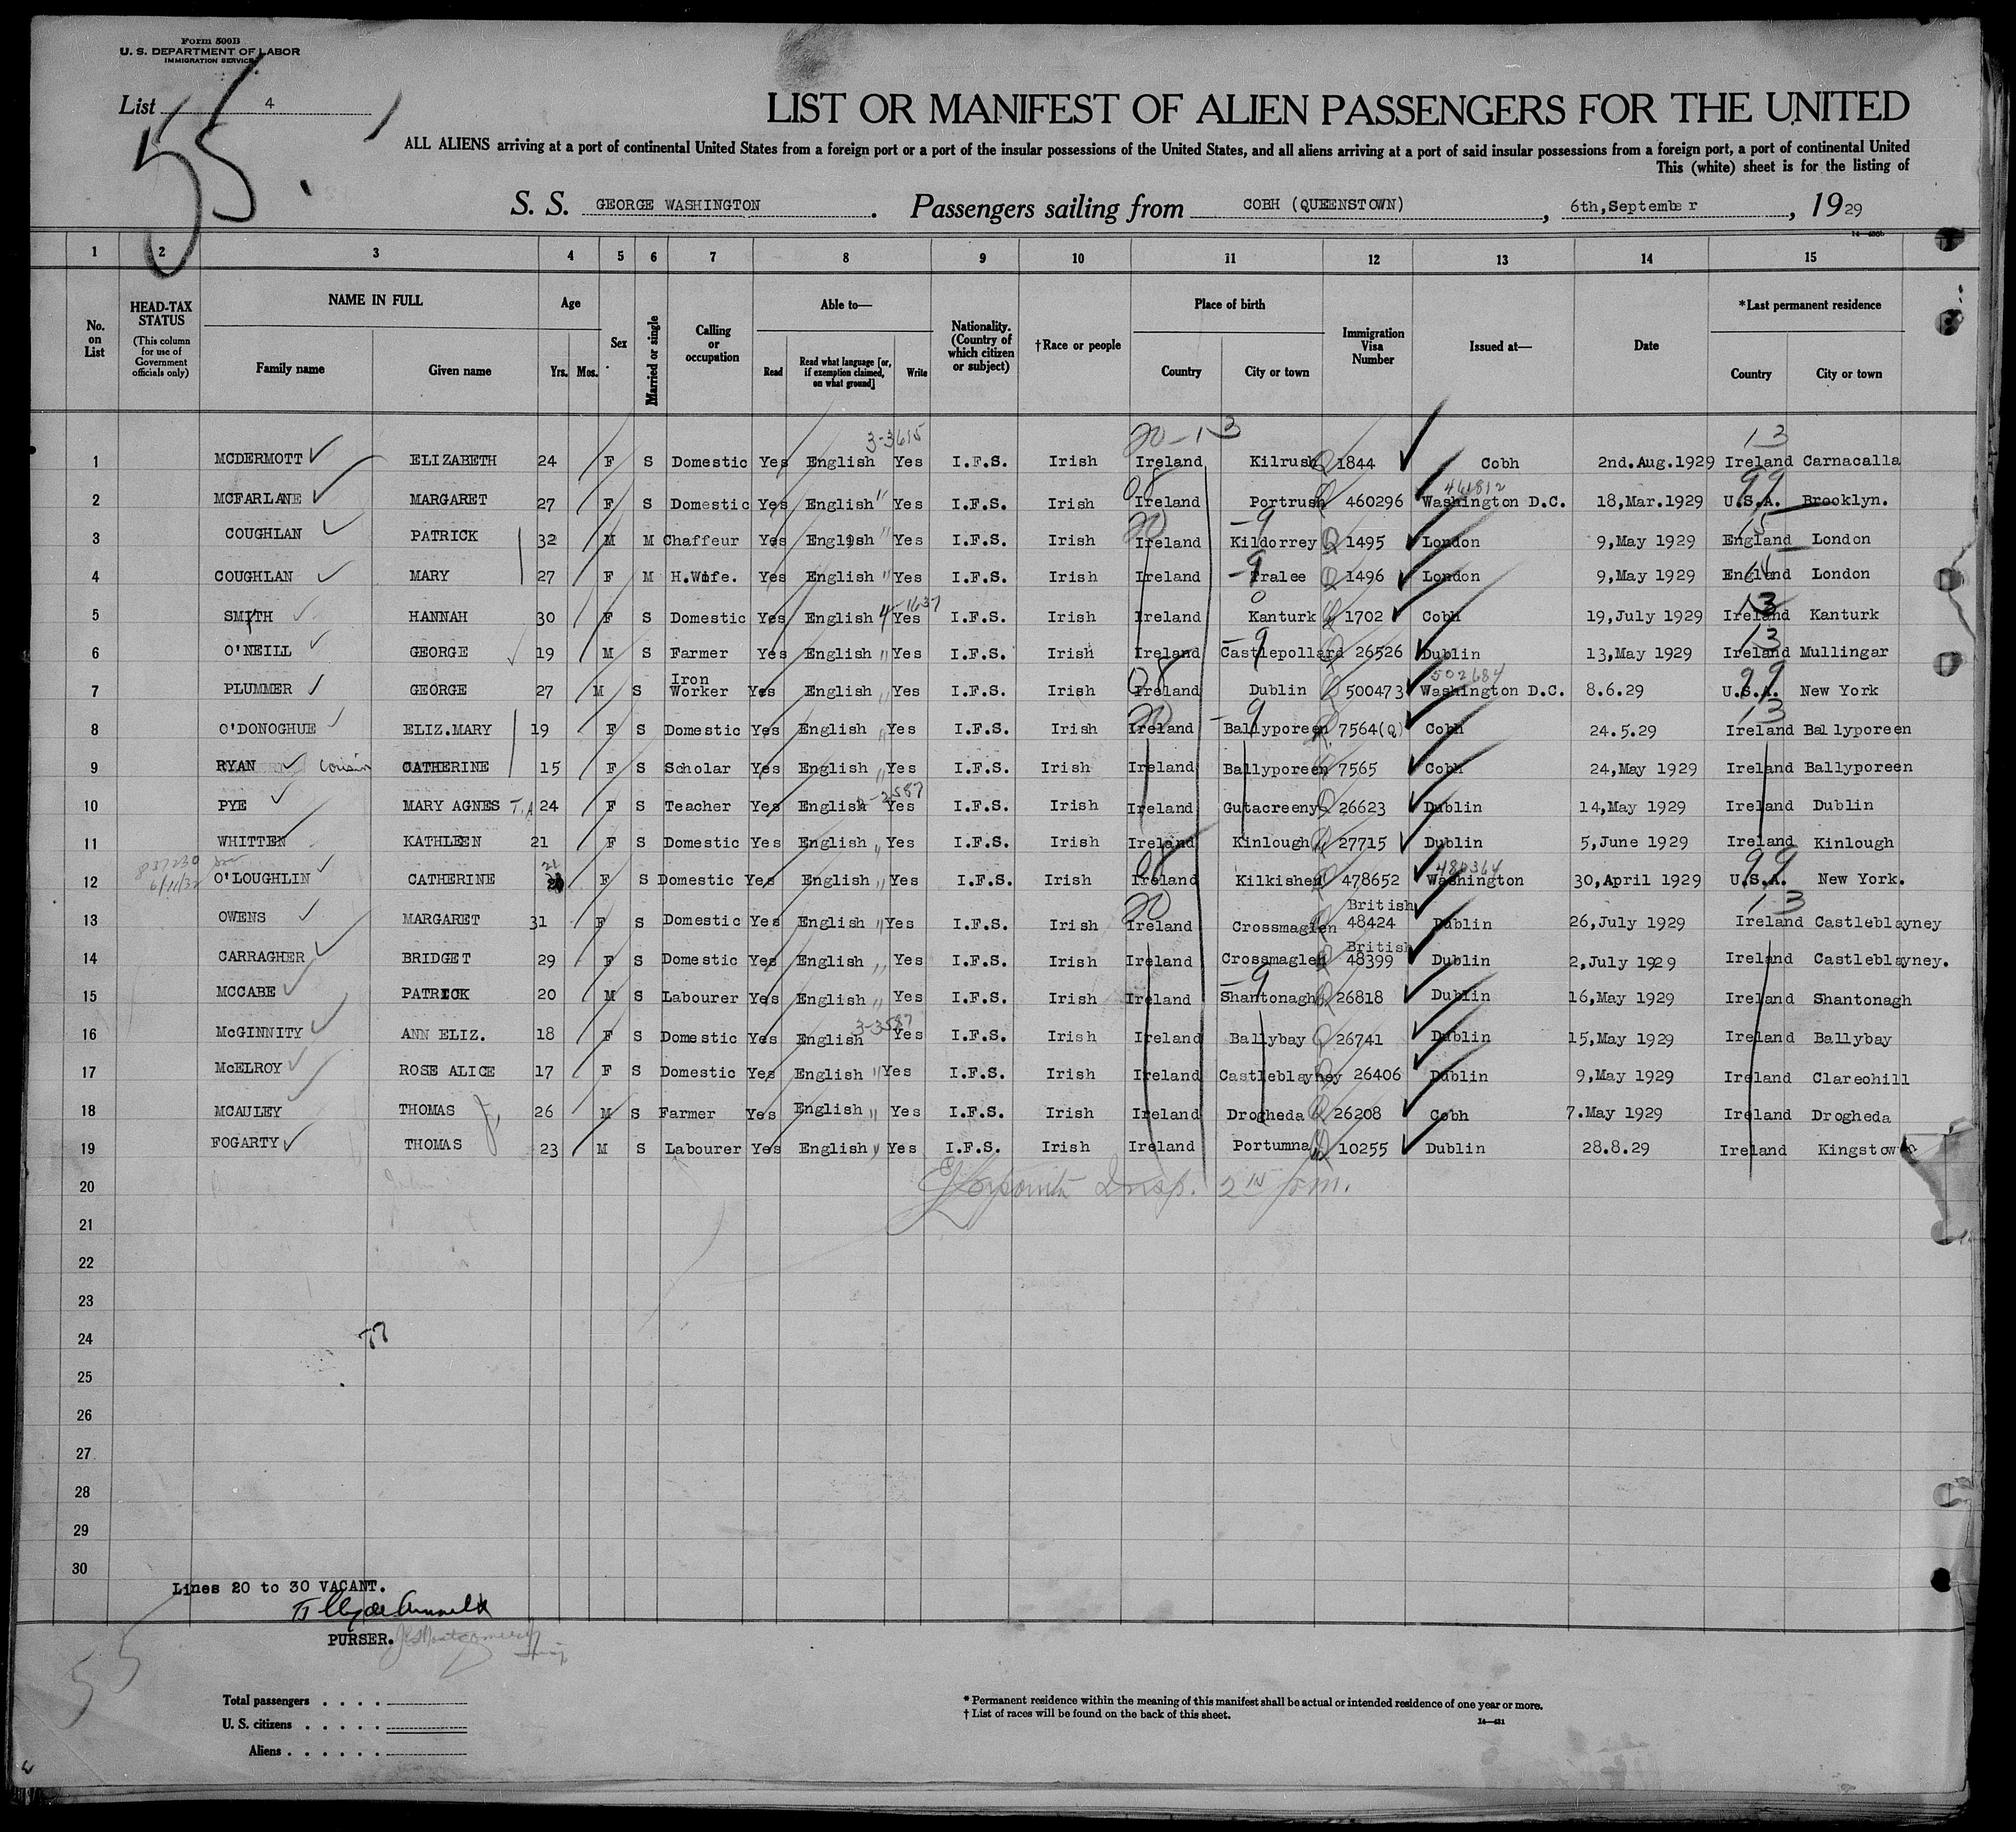 Form 500B
U. S. DEPARTMENT OF LABOR
IMMIGRATION SERVICE
List 4
55.
LIST OR MANIFEST OF ALIEN PASSENGERS FOR THE UNITED
ALL ALIENS arriving at a port of continental United States from a foreign port or a port of the insular possessions of the United States, and all aliens arriving at a port of said insular possessions from a foreign port, a port of continental United
This (white) sheet is for the listing of
S. S. GEORGE WASHINGTON. Passengers sailing from COBH (QUEENSTOWN), 6th,September, 1929
1 2 3 4 5 6 7 8 9 10 11 12 13 14 15
No. on List
HEAD-TAX STATUS (This column for use of Government officials only)
NAME IN FULL Family name Given name
Age Yrs. Mos.
Sex
Married or single
Calling or occupation
Able to— Read Read what language [or, if exemption claimed, on what ground] Write
Nationality. (Country of which citizen or subject)
†Race or people
Place of birth Country City or town
Immigration Visa Number
Issued at—
Date
*Last permanent residence Country City or town
20-13 3-3615 13
1 MCDERMOTT ELIZABETH 24 F S Domestic Yes English Yes I.F.S. Irish Ireland Kilrush Q 1844 Cobh 2nd.Aug.1929 Ireland Carnacalla
08 461812 99
2 MCFARLANE MARGARET 27 F S Domestic Yes English " Yes I.F.S. Irish Ireland Portrush 460296 Washington D.C. 18,Mar.1929 U.S.A. Brooklyn.
20 -9 15
3 COUGHLAN PATRICK 32 M M Chaffeur Yes English " Yes I.F.S. Irish Ireland Kildorrey Q 1495 London 9,May 1929 England London
4 COUGHLAN MARY 27 F M H.Wife. Yes English " Yes I.F.S. Irish Ireland Tralee Q 1496 London 9,May 1929 England London
4-1637 13
5 SMITH HANNAH 30 F S Domestic Yes English Yes I.F.S. Irish Ireland Kanturk 1702 Cobh 19,July 1929 Ireland Kanturk
-9 13
6 O'NEILL GEORGE 19 M S Farmer Yes English " Yes I.F.S. Irish Ireland Castlepollard 26526 Dublin 13,May 1929 Ireland Mullingar
08 502684 99
7 PLUMMER GEORGE 27 M S Iron Worker Yes English " Yes I.F.S. Irish Ireland Dublin 500473 Washington D.C. 8.6.29 U.S.A. New York
20 -9 13
8 O'DONOGHUE ELIZ.MARY 19 F S Domestic Yes English " Yes I.F.S. Irish Ireland Ballyporeen 7564(Q) Cobh 24.5.29 Ireland Ballyporeen
9 RYAN cousin CATHERINE 15 F S Scholar Yes English " Yes I.F.S. Irish Ireland Ballyporeen 7565 Cobh 24,May 1929 Ireland Ballyporeen
10 PYE MARY AGNES T.A 24 F S Teacher Yes English Yes I.F.S. Irish Ireland Gutacreeny Q 26623 Dublin 14,May 1929 Ireland Dublin
11 WHITTEN KATHLEEN 21 F S Domestic Yes English " Yes I.F.S. Irish Ireland Kinlough 27715 Dublin 5,June 1929 Ireland Kinlough
08 480364 99
12 O'LOUGHLIN CATHERINE 21 F S Domestic Yes English " Yes I.F.S. Irish Ireland Kilkishen 478652 Washington 30,April 1929 U.S.A. New York.
20 13
13 OWENS MARGARET 31 F S Domestic Yes English " Yes I.F.S. Irish Ireland Crossmaglen British 48424 Dublin 26,July 1929 Ireland Castleblayney
14 CARRAGHER BRIDGET 29 F S Domestic Yes English " Yes I.F.S. Irish Ireland Crossmaglen British 48399 Dublin 2,July 1929 Ireland Castleblayney.
-9
15 MCCABE PATRICK 20 M S Labourer Yes English " Yes I.F.S. Irish Ireland Shantonagh 26818 Dublin 16,May 1929 Ireland Shantonagh
3-3587
16 McGINNITY ANN ELIZ. 18 F S Domestic Yes English Yes I.F.S. Irish Ireland Ballybay Q 26741 Dublin 15,May 1929 Ireland Ballybay
17 McELROY ROSE ALICE 17 F S Domestic Yes English " Yes I.F.S. Irish Ireland Castleblayney 26406 Dublin 9,May 1929 Ireland Clareohill
18 MCAULEY THOMAS 26 M S Farmer Yes English " Yes I.F.S. Irish Ireland Drogheda Q 26208 Cobh 7.May 1929 Ireland Drogheda
19 FOGARTY THOMAS 23 M S Labourer Yes English " Yes I.F.S. Irish Ireland Portumna 10255 Dublin 28.8.29 Ireland Kingstown
20
21
22
23
24
25
26
27
28
29
30
Lines 20 to 30 VACANT.
PURSER.
55
Total passengers . . . .
U. S. citizens . . . . .
Aliens . . . . . .
* Permanent residence within the meaning of this manifest shall be actual or intended residence of one year or more.
† List of races will be found on the back of this sheet.
14—431